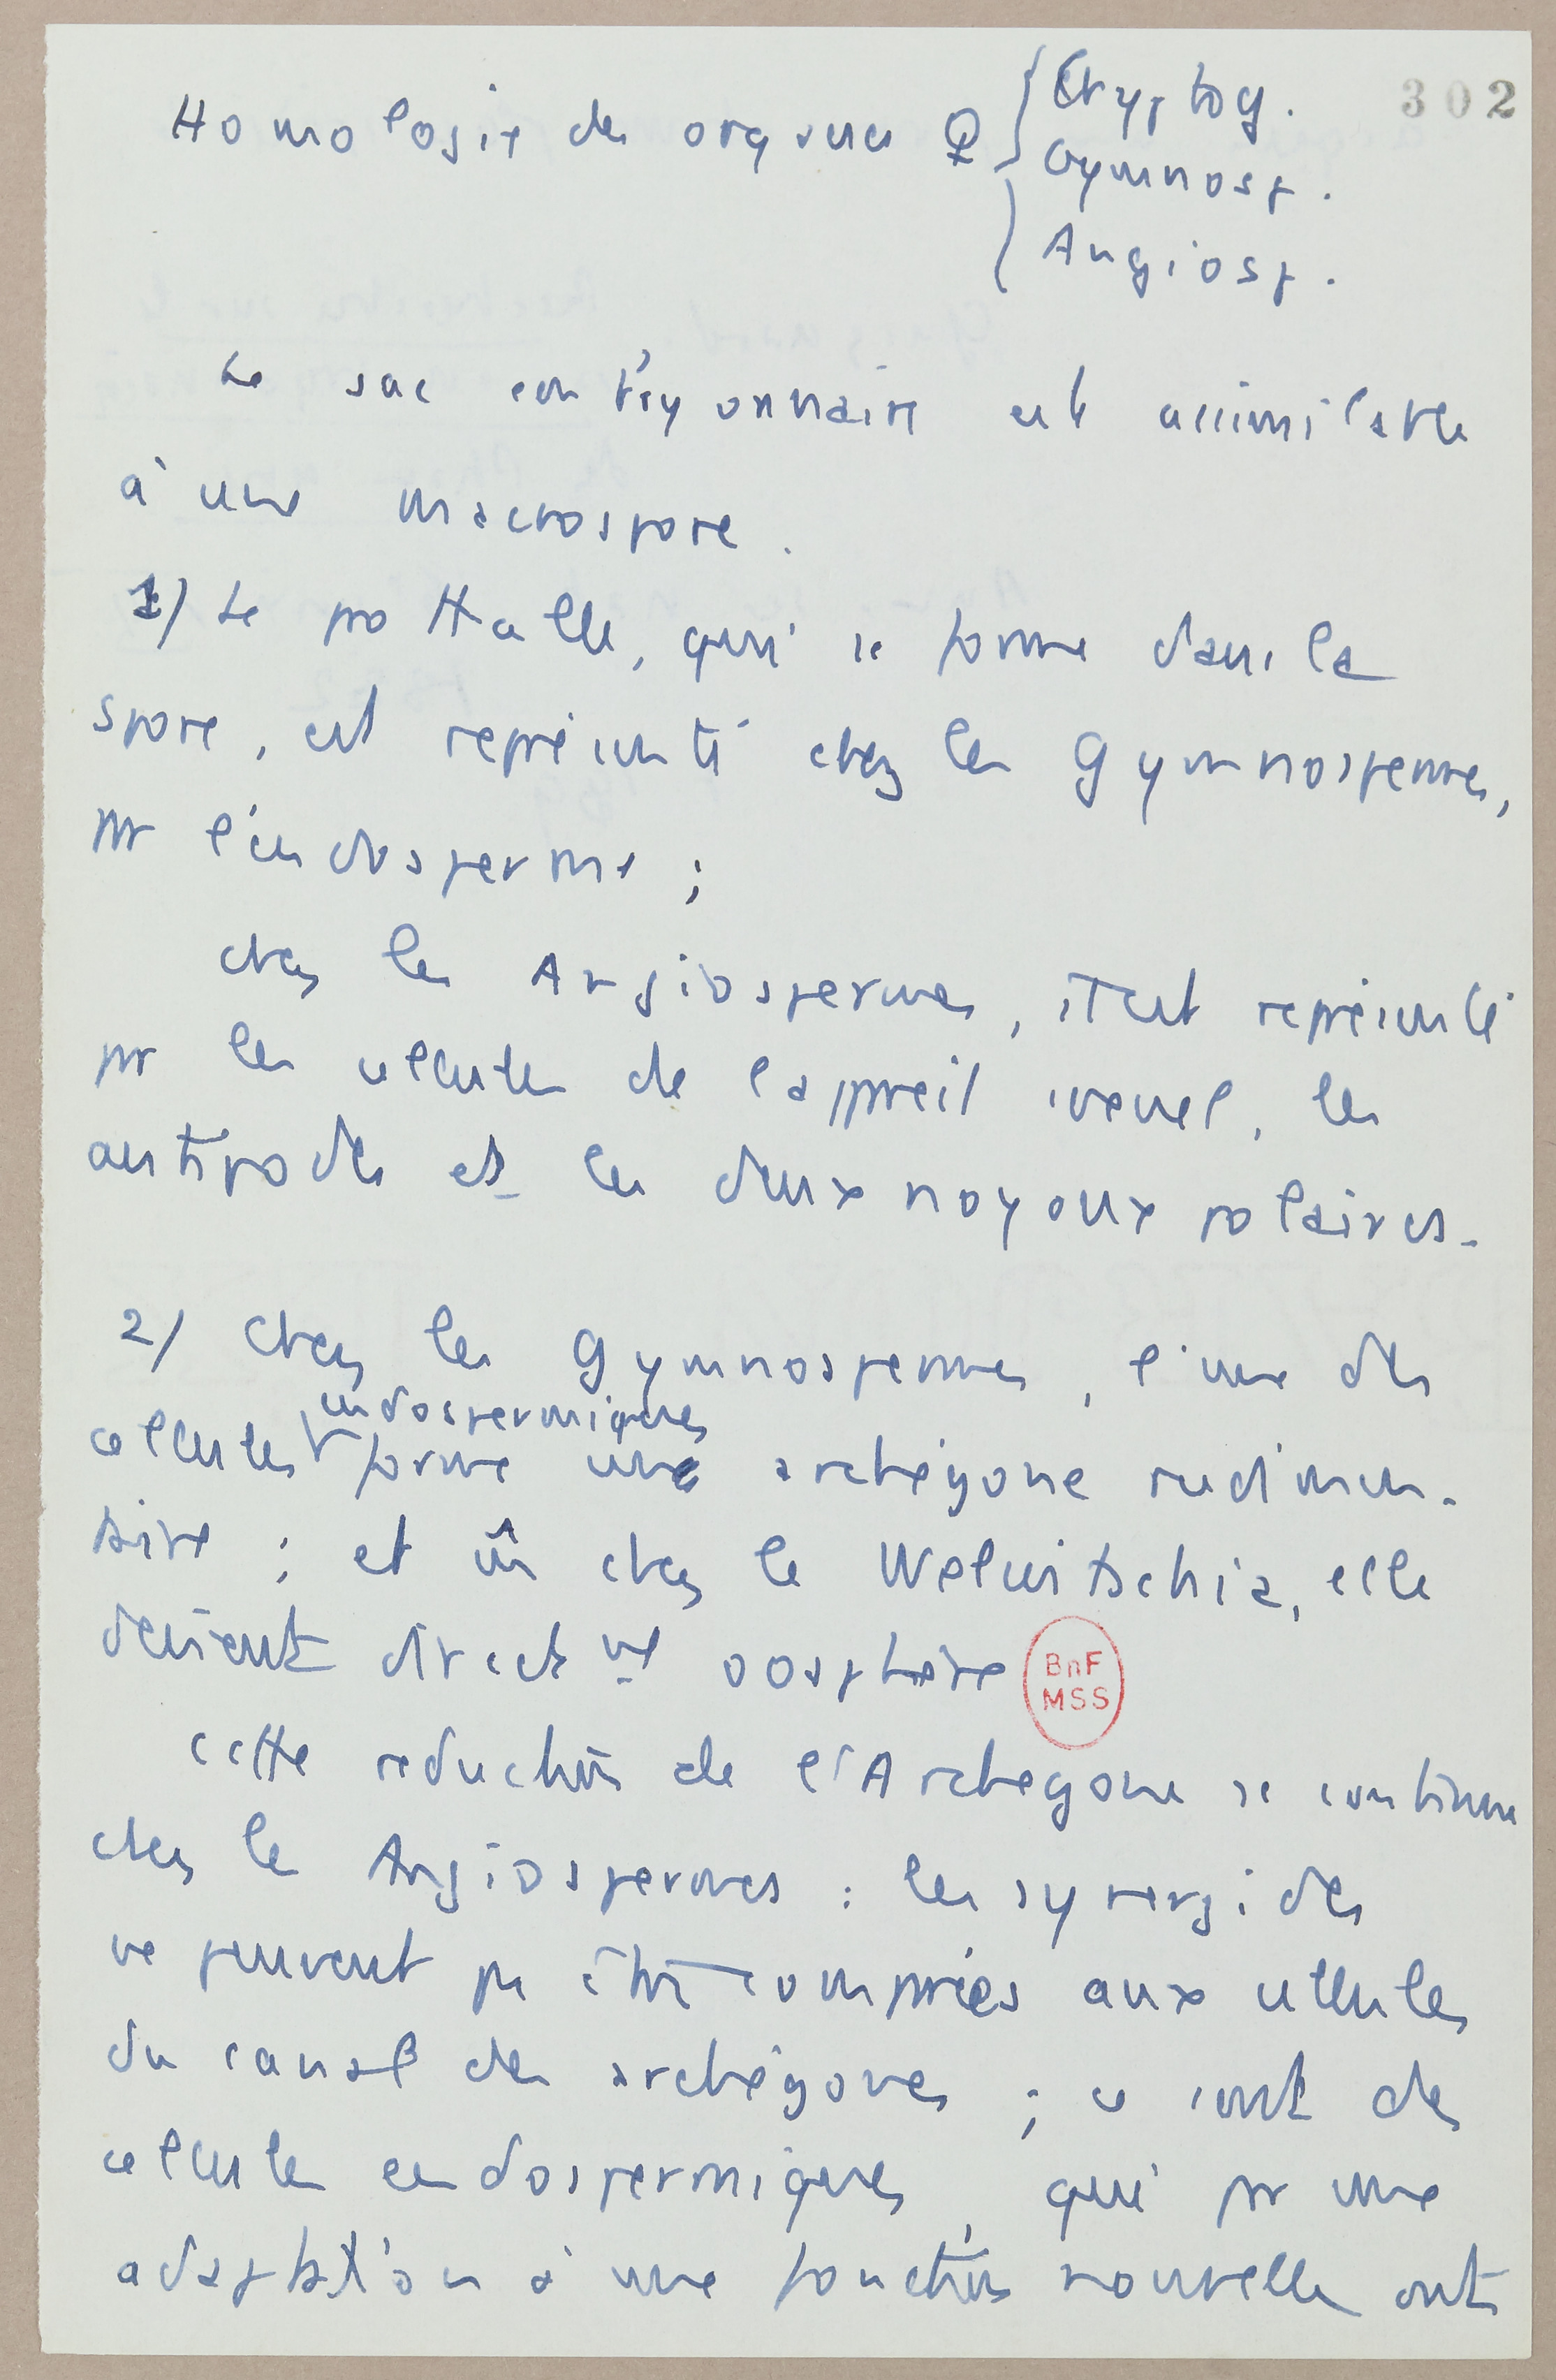 302
Homologie des organes ♀ { Cryptog.
Gymnosp.
Angiosp.
Le sac embryonnaire est assimilable
à une macrospore.
1) Le prothalle, qui se forme dans la
spore, est représenté chez les Gymnospermes,
par l'endosperme ;
chez les Angiospermes, il est représenté
par les cellules de l'appareil sexuel, les
antipodes et les deux noyaux polaires.
2) Chez les Gymnospermes, l'une des
endospermiques
cellules forme une archégone rudimen-
taire ; et m̂ chez le Welwitschia, elle
devient direct nt oosphère
BnF
MSS
Cette réduction de l'Archégone se continue
chez les Angiospermes : les synergides
ne peuvent pas être comparées aux cellules
du canal des archégones ; ce sont des
cellules endospermiques, qui par une
adaptation à une fonction nouvelle ont